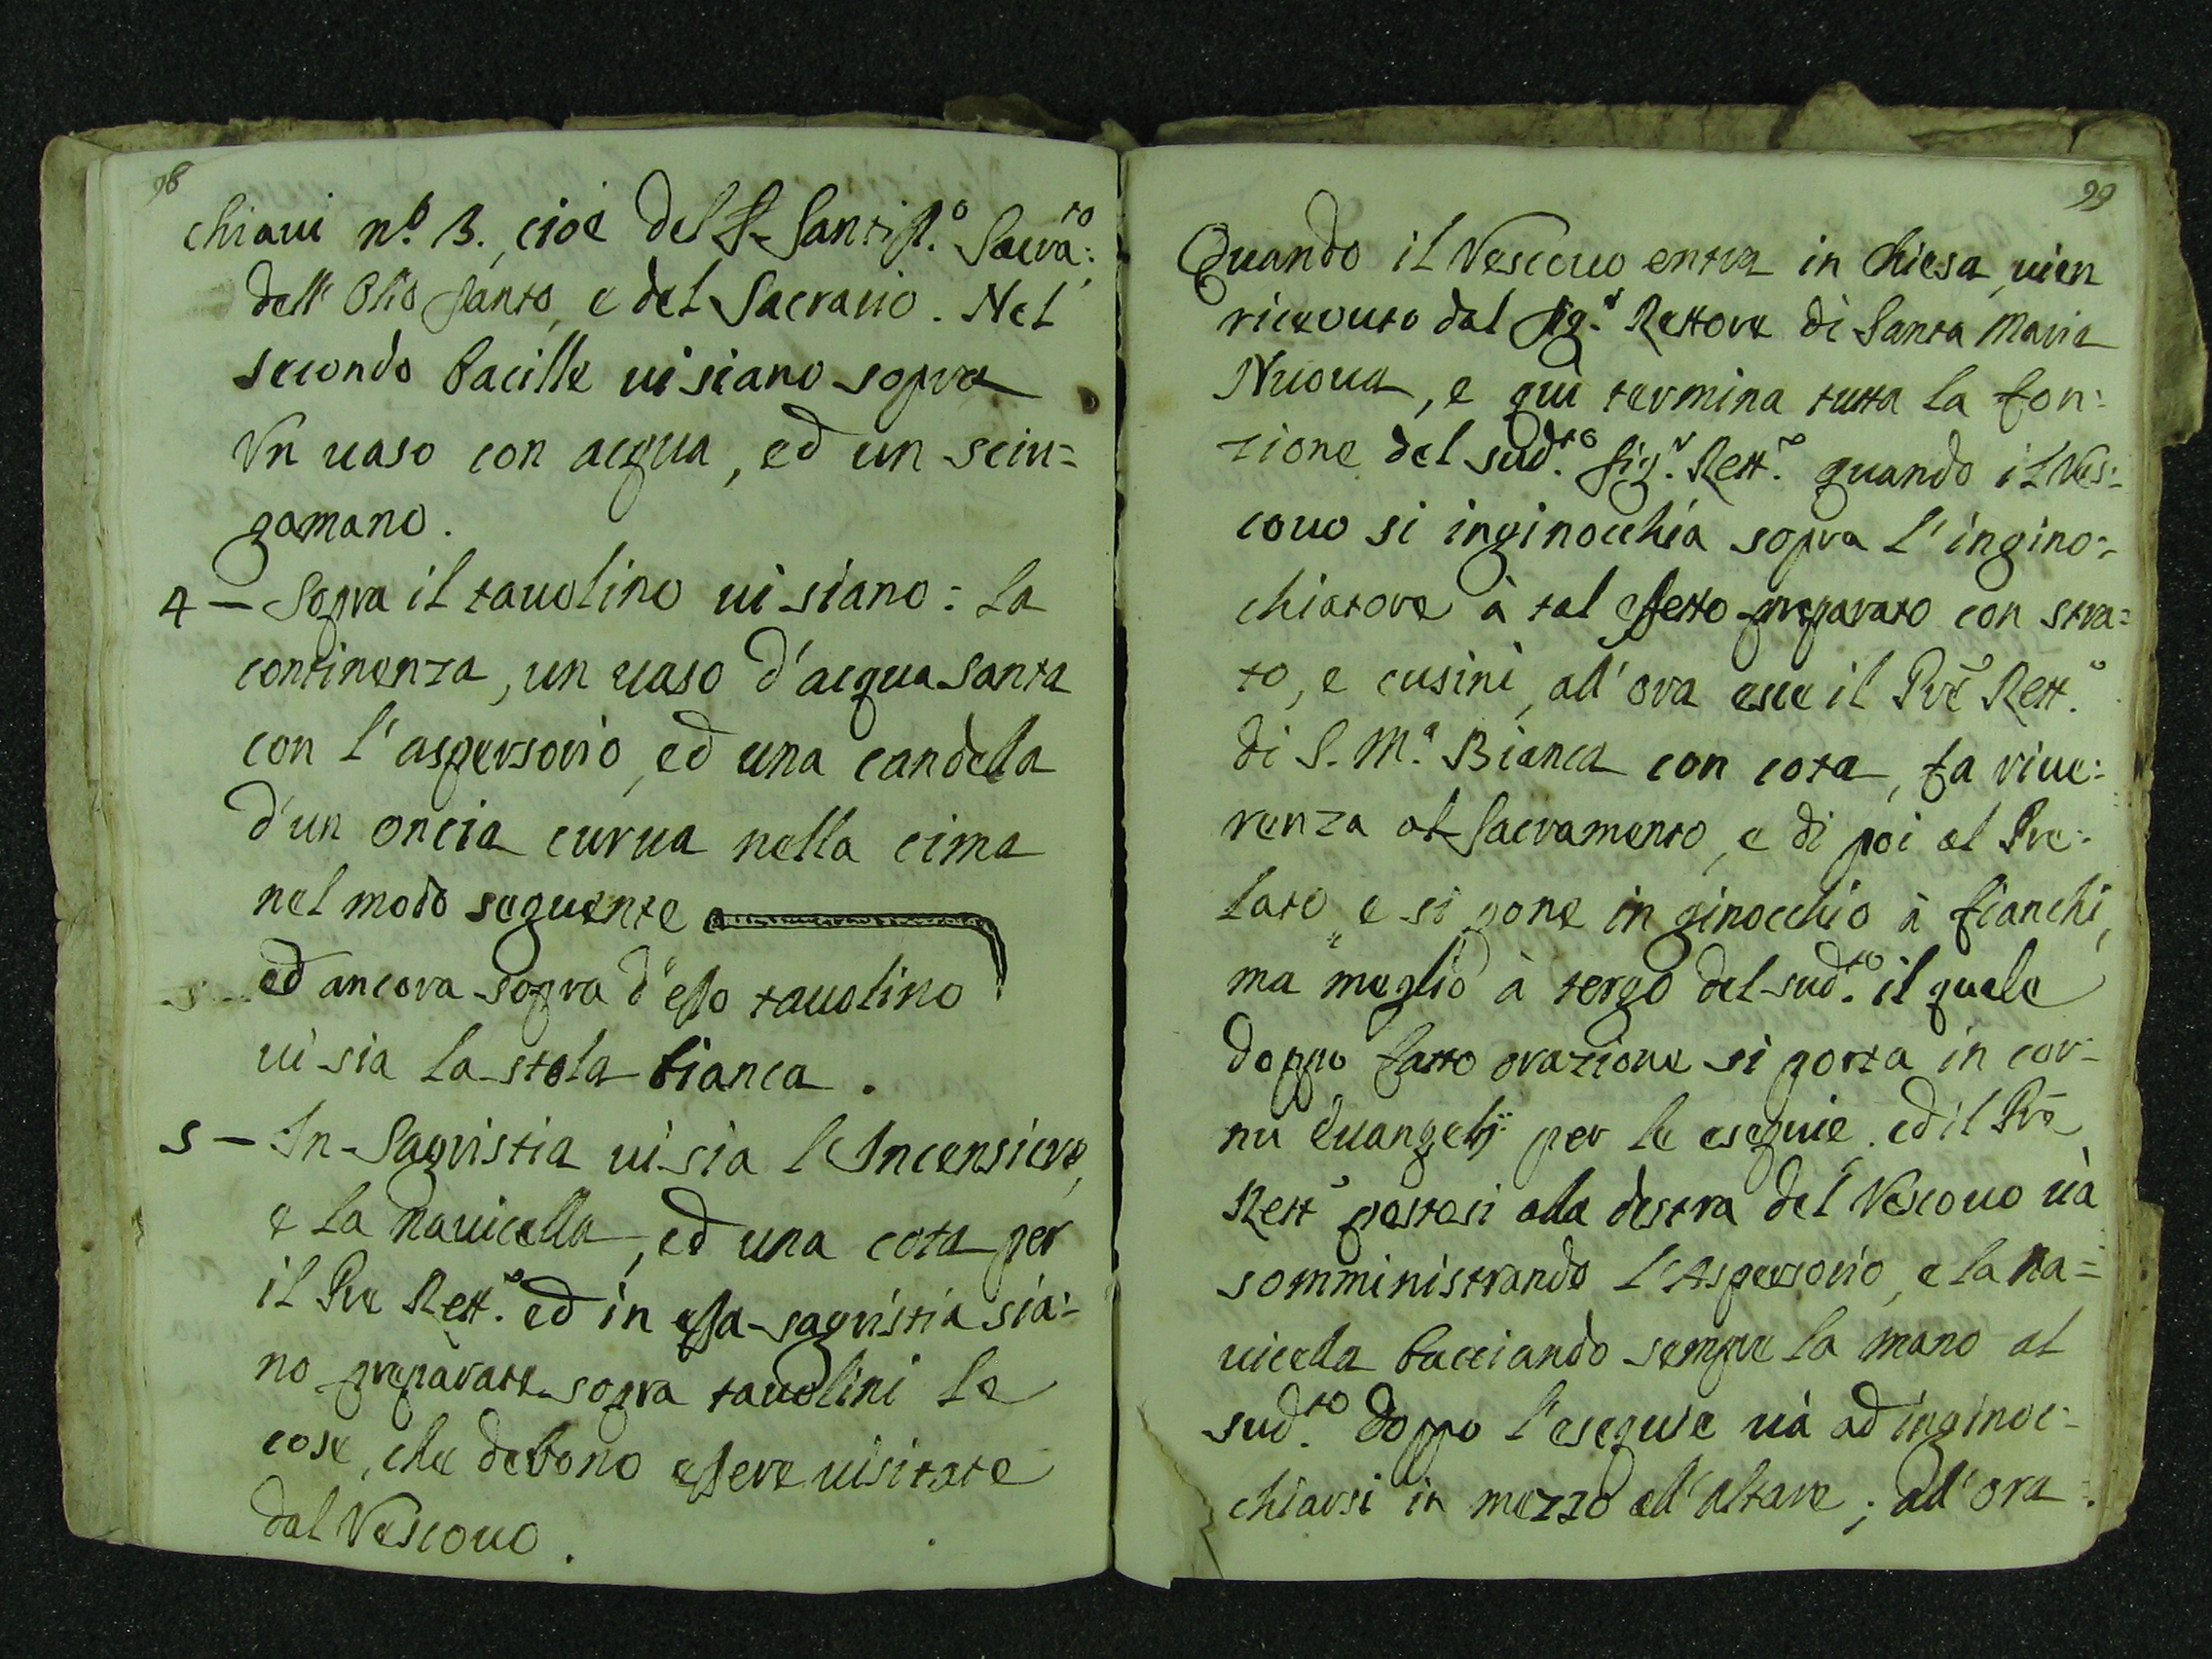 98
chiaui n.º 3., cioè del S. Santiss.º Sacra:to
dell'Olio santo, e del Sacrario. Nel
secondo bacille ui siano sopra
Vn uaso con acqua, ed un sciu=
gamano.
4 — Sopra il tauolino ui siano: la
continenza, un uaso d'acqua santa
con l'aspersorio, ed una candela
d'un oncia curua nella cima
nel modo seguente
ed ancora sopra d'esso tauolino
ui sia la stola bianca.
5 — In Sagristia ui sia l'Incensiere,
e la nauicella, ed una cota per
il Pre Rett.e ed in essa sagristia sia:
no preparate sopra tauolini le
cose, che debono essere uisitate
dal Vescouo.
99
Quando il Vescouo entra in chiesa, uien
riceuuto dal sig.r Rettore di Santa Maria
Nuoua, e quì termina tutta la fon:
zione del sud.to sig.r Rett.e quando il Ves:
couo si inginocchia sopra l'ingino:
chiatore à tal effetto preparato con stra=
to, e cusini, all'ora esce il Prē Rett.e
di S. M.a Bianca con cota, fa riue:
renza al Sacramento, e di poi al Pre:
lato, e si pone in ginocchio à fianchi,
ma meglio à tergo del sud.to il quale
doppo fatto orazione si porta in cor=
nu Euangelij per le esequie, ed il Prē
Rett.e postosi alla destra del Vescouo uà
somministrando l'Aspersorio, e la na=
uicella bacciando sempre la mano al
sud.to doppo l'esequie uà ad inginoc=
chiarsi in mezzo all'altare; all'ora